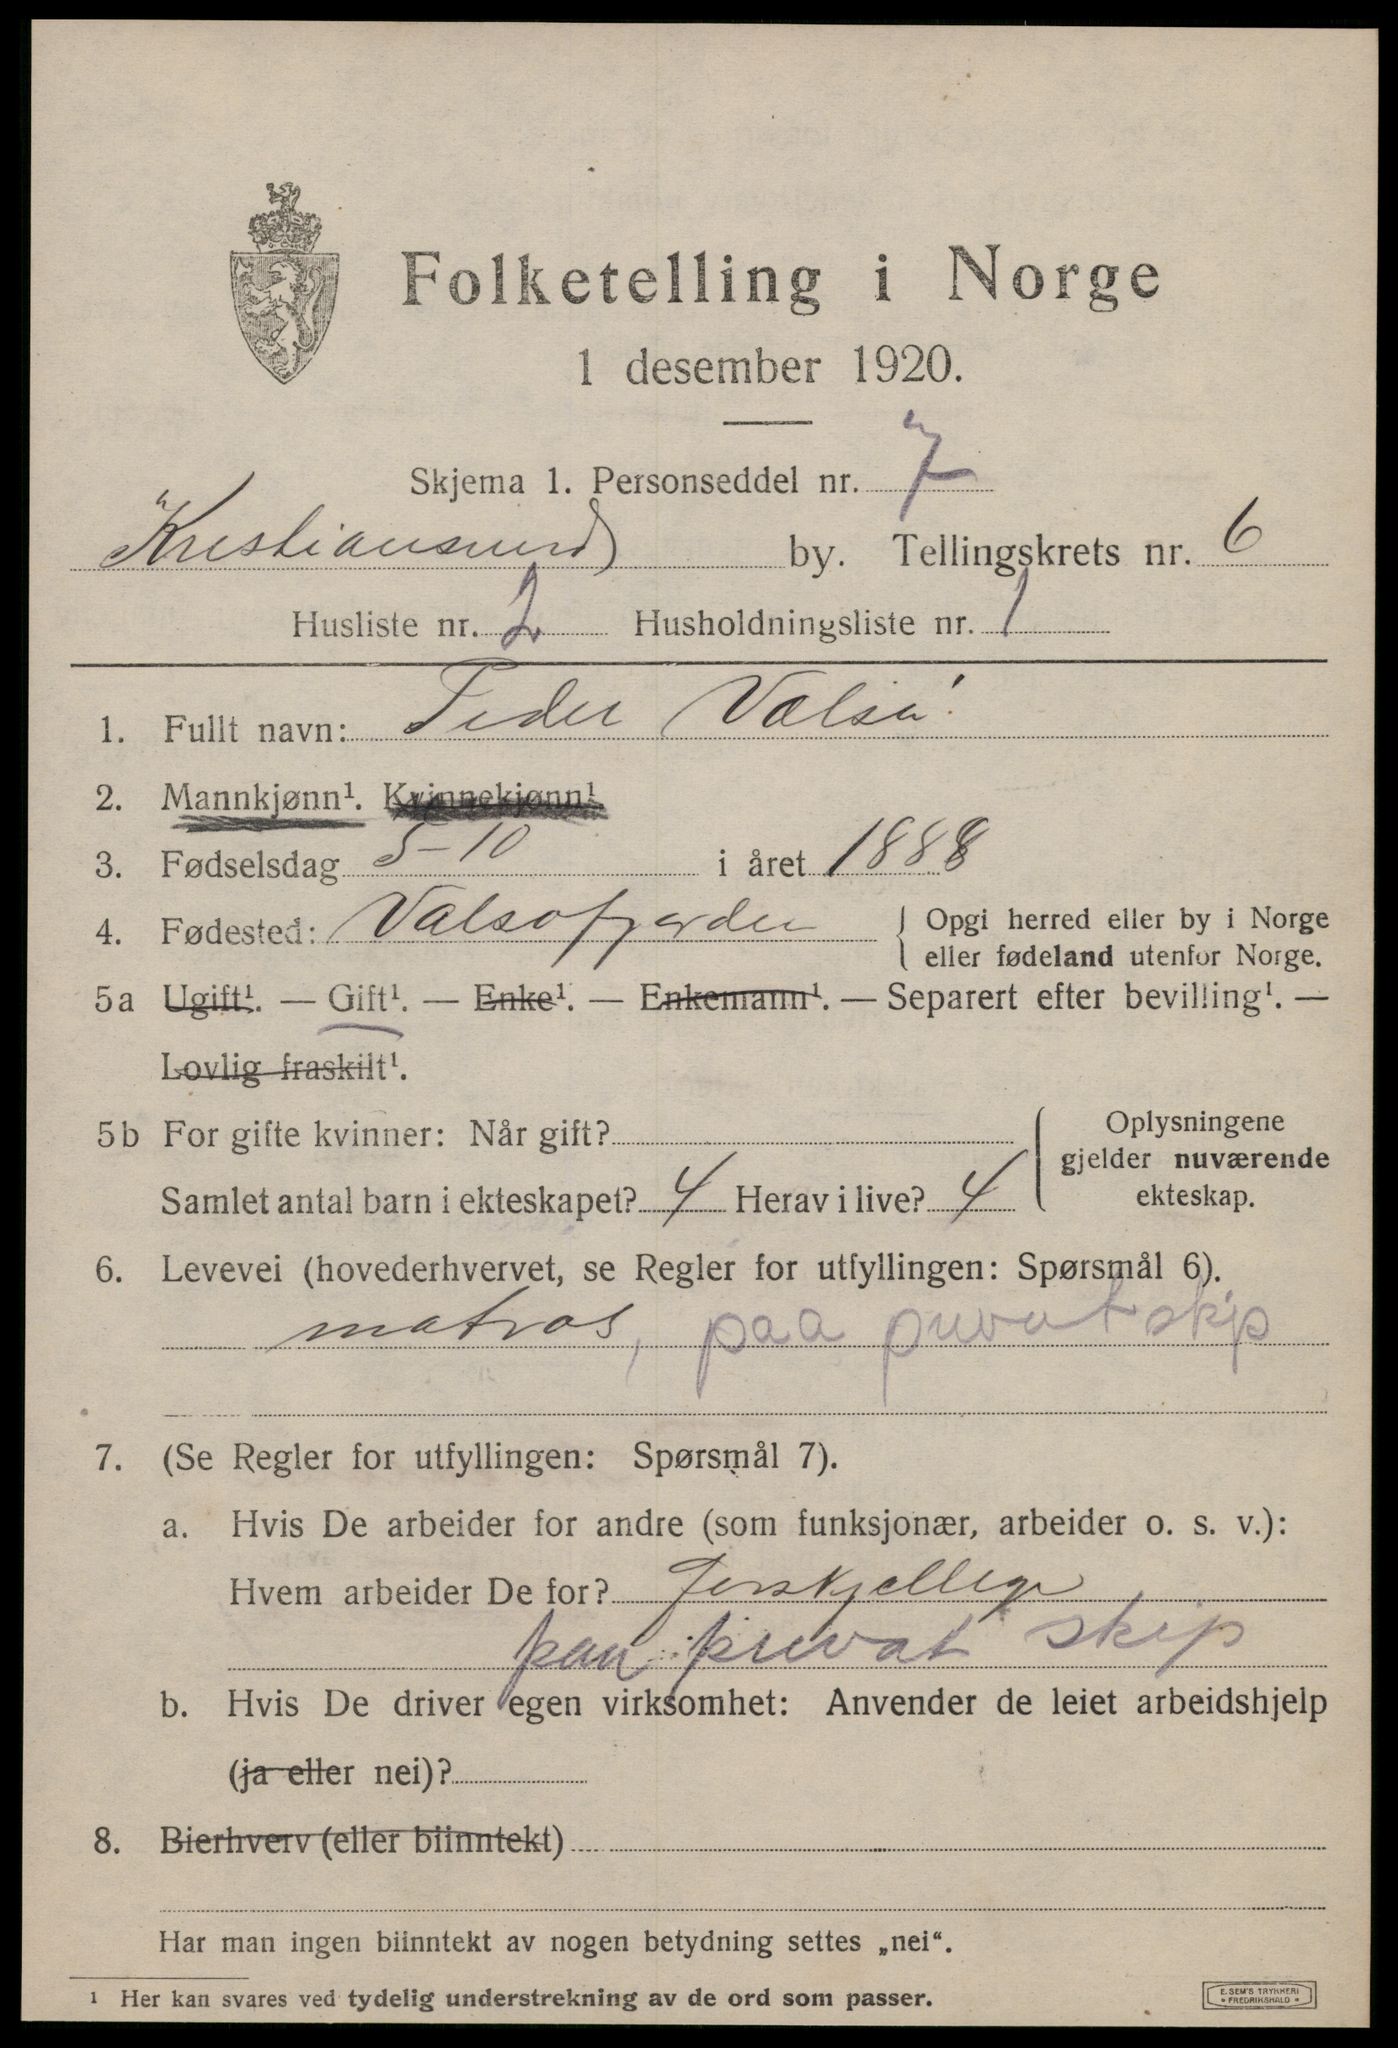 Folketelling i Norge
1 desember 1920.
Skjema 1. Personseddel nr. 7
Kristiansund by. Tellingskrets nr. 6
Husliste nr. 2 Husholdningsliste nr. 1
1. Fullt navn: Peder Valsø
2. Mannkjønn¹. Kvinnekjønn¹.
3. Fødselsdag 5-10 i året 1888
4. Fødested: Valsøfjorden { Opgi herred eller by i Norge
eller fødeland utenfor Norge.
5a Ugift¹. — Gift¹. — Enke¹. — Enkemann¹. — Separert efter bevilling¹. —
Lovlig fraskilt¹.
5b For gifte kvinner: Når gift?
Samlet antal barn i ekteskapet? 4 Herav i live? 4
{ Oplysningene
gjelder nuværende
ekteskap.
6. Levevei (hovederhvervet, se Regler for utfyllingen: Spørsmål 6).
matros, paa privat skip
7. (Se Regler for utfyllingen: Spørsmål 7).
a. Hvis De arbeider for andre (som funksjonær, arbeider o. s. v.):
Hvem arbeider De for? Forskjellige
paa privat skip
b. Hvis De driver egen virksomhet: Anvender de leiet arbeidshjelp
(ja eller nei)?
8. Bierhverv (eller biinntekt)
Har man ingen biinntekt av nogen betydning settes „nei“.
¹ Her kan svares ved tydelig understrekning av de ord som passer.
E. SEM'S TRYKKERI
• FREDRIKSHALD •